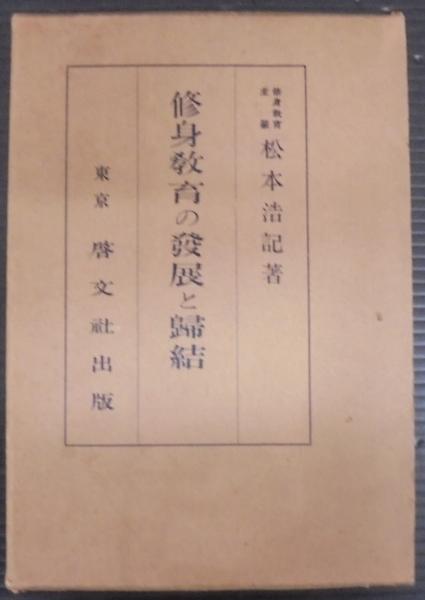 修身教育
主幹
松本浩記著
修身敎育の發展と歸結
東京 啓文社出版